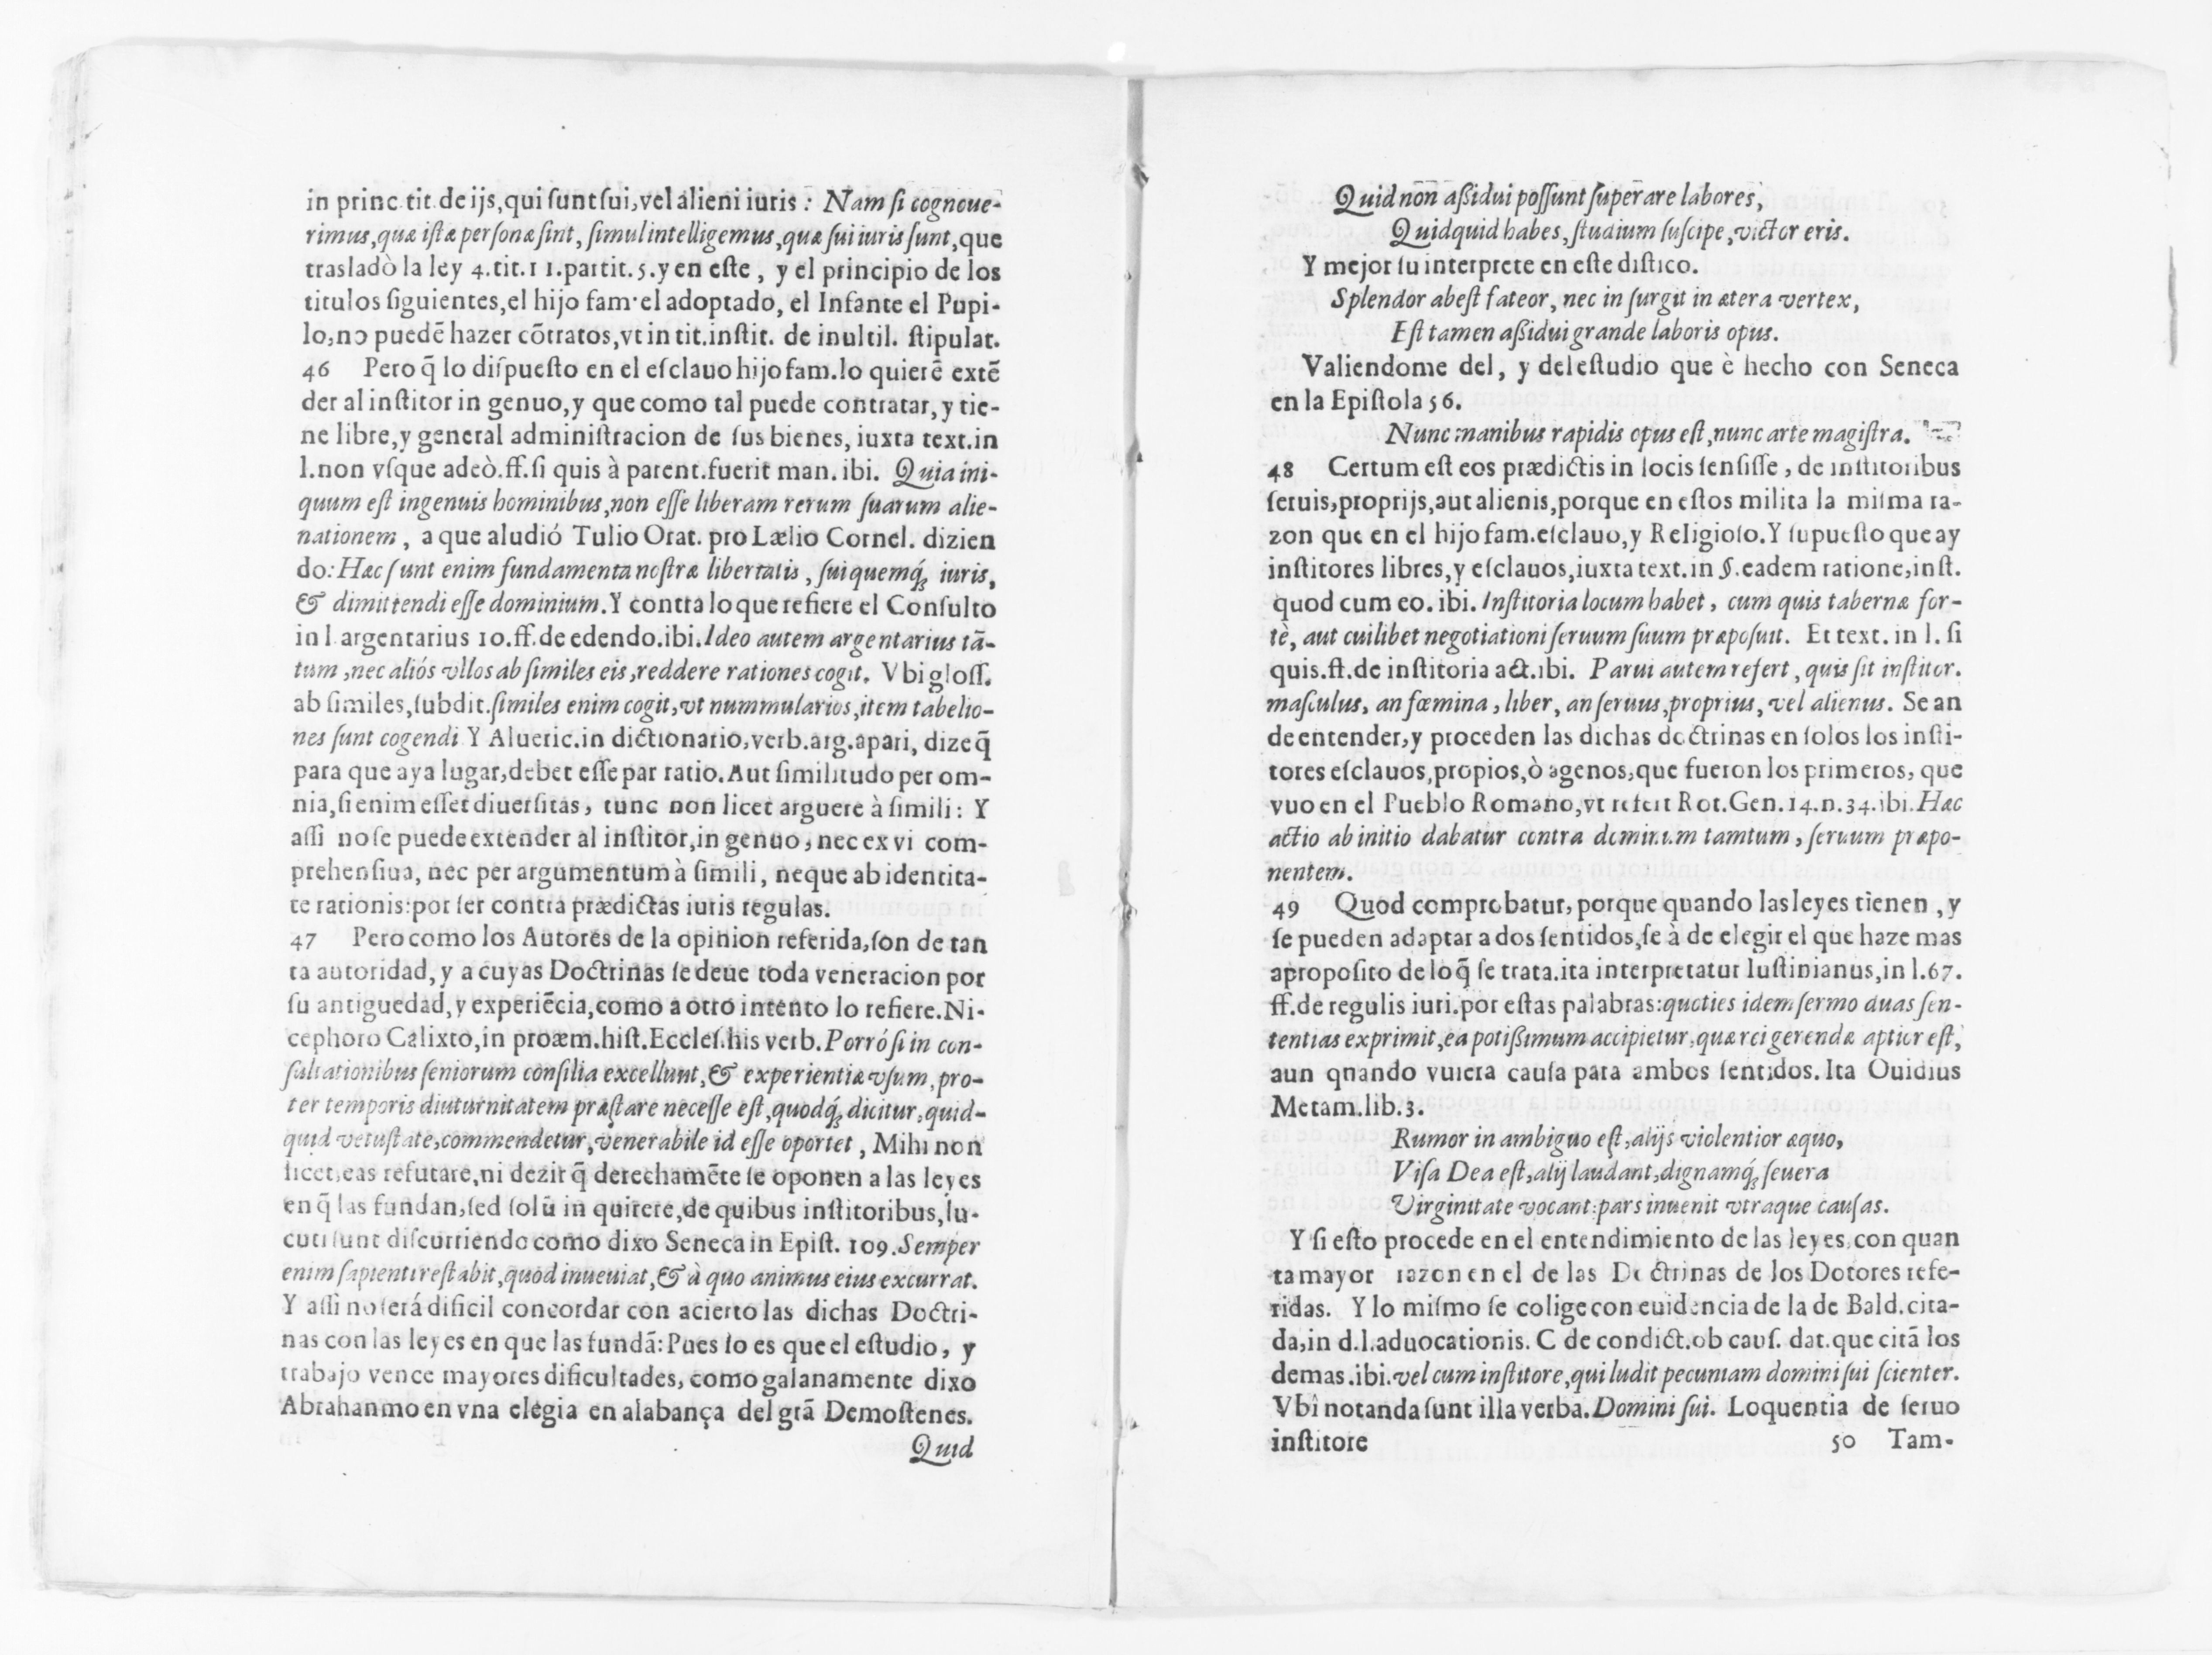 in princ. tit. de ijs, qui ſunt ſui, vel alieni iuris : Nam ſi cognoue-
rimus, quæ iſtæ perſonæ ſint, ſimul intelligemus, quæ ſui iuris ſunt, que
trasladò la ley 4. tit. 11. partit. 5. y en eſte , y el principio de los
titulos ſiguientes, el hijo fam· el adoptado, el Infante el Pupi-
lo, no puedẽ hazer cõtratos, vt in tit. inſtit. de inultil. ſtipulat.
46 Pero q̃ lo diſpueſto en el eſclauo hijo fam. lo quierẽ extẽ
der al inſtitor in genuo, y que como tal puede contratar, y tie-
ne libre, y general adminiſtracion de ſus bienes, iuxta text. in
l. non vſque adeò. ff. ſi quis à parent. fuerit man. ibi. Quia ini-
quum eſt ingenuis hominibus, non eſſe liberam rerum ſuarum alie-
nationem , a que aludió Tulio Orat. pro Lælio Cornel. dizien
do: Hæc ſunt enim fundamenta noſtræ libertatis , ſui quemq́ꝫ iuris,
& dimittendi eſſe dominium. Y contra lo que refiere el Conſulto
in l argentarius 10. ff. de edendo. ibi. Ideo autem argentarius tã-
tum , nec aliós vllos ab ſimiles eis, reddere rationes cogit. Vbi gloſſ.
ab ſimiles, ſubdit. ſimiles enim cogit, vt nummularios, item tabelio-
nes ſunt cogendi Y Alueric. in dictionario, verb. arg. apari, dize q̃
para que aya lugar, debet eſſe par ratio. Aut ſimilitudo per om-
nia, ſi enim eſſet diuerſitas, tunc non licet arguere à ſimili : Y
aſſi no ſe puede extender al inſtitor, in genuo, nec ex vi com-
prehenſiua, nec per argumentum à ſimili, neque ab identita-
te rationis: por ſer contra prædictas iuris regulas.
47 Pero como los Autores de la opinion referida, ſon de tan
ta autoridad, y a cuyas Doctrinas ſe deue toda veneracion por
ſu antiguedad, y experiẽcia, como a otro intento lo refiere. Ni-
cephoro Calixto, in proæm. hiſt. Eccleſ. his verb. Porró ſi in con-
ſultationibus ſeniorum conſilia excellunt, & experientiæ vſum, pro-
ter temporis diuturnitatem præſtare neceſſe eſt, quodq́ꝫ dicitur, quid-
quid vetuſtate, commendetur, venerabile id eſſe oportet , Mihi non
licet, eas refutare, ni dezir q̃ derechamẽte ſe oponen a las leyes
en q̃ las fundan, ſed ſolũ in quirere, de quibus inſtitoribus, lu-
cuti ſunt diſcurriendo como dixo Seneca in Epiſt. 109. Semper
enim ſapienti reſtabit, quod inueuiat, & à quo animus eius excurrat.
Y aſſi no ſerá dificil concordar con acierto las dichas Doctri-
nas con las leyes en que las fundã: Pues ſo es que el eſtudio, y
trabajo vence mayores dificultades, como galanamente dixo
Abrahanmo en vna elegia en alabança del grã Demoſtenes.
Quid
Quid non aßidui poſſunt ſuperare labores,
Quidquid habes, ſtudium ſuſcipe, victor eris.
Y mejor ſu interprete en eſte diſtico.
Splendor abeſt fateor, nec in ſurgit in ætera vertex,
Eſt tamen aßidui grande laboris opus.
Valiendome del, y del eſtudio que è hecho con Seneca
en la Epiſtola 56.
Nunc manibus rapidis opus eſt, nunc arte magiſtra.
48 Certum eſt eos prædictis in locis ſenſiſſe, de inſtitoribus
ſeruis, proprijs, aut alienis, porque en eſtos milita la miſma ra-
zon que en el hijo fam. eſclauo, y Religioſo. Y ſupueſto que ay
inſtitores libres, y eſclauos, iuxta text. in §. eadem ratione, inſt.
quod cum eo. ibi. Inſtitoria locum habet, cum quis tabernæ for-
tè, aut cuilibet negotiationi ſeruum ſuum præpoſuit. Et text. in l. ſi
quis. ff. de inſtitoria act. ibi. Parui autem refert, quis ſit inſtitor.
maſculus, an fœmina, liber, an ſeruus, proprius, vel alienus. Se an
de entender, y proceden las dichas doctrinas en ſolos los inſti-
tores eſclauos, propios, ò agenos, que fueron los primeros, que
vuo en el Pueblo Romano, vt refert Rot. Gen. 14. n. 34. ibi. Hæc
actio ab initio dabatur contra dominum tamtum, ſeruum præpo-
nentem.
49 Quod comprobatur, porque quando las leyes tienen , y
ſe pueden adaptar a dos ſentidos, ſe à de elegir el que haze mas
apropoſito de lo q̃ ſe trata. ita interpretatur Iuſtinianus, in l. 67.
ff. de regulis iuri. por eſtas palabras: quoties idem ſermo duas ſen-
tentias exprimit, ea potißimum accipietur, quæ rei gerendæ aptior eſt,
aun qnando vuiera cauſa para ambos ſentidos. Ita Ouidius
Metam. lib. 3.
Rumor in ambiguo eſt, alijs violentior æquo,
Viſa Dea eſt, alij laudant, dignamq́ꝫ ſeuera
Virginitate vocant: pars inuenit vtraque cauſas.
Y ſi eſto procede en el entendimiento de las leyes, con quan
ta mayor razon en el de las Doctrinas de los Dotores refe-
ridas. Y lo miſmo ſe colige con euidencia de la de Bald. cita-
da, in d. l. aduocationis. C de condict. ob cauſ. dat. que citã los
demas. ibi. vel cum inſtitore, qui ludit pecuniam domini ſui ſcienter.
Vbi notanda ſunt illa verba. Domini ſui. Loquentia de ſeruo
inſtitore 50 Tam-